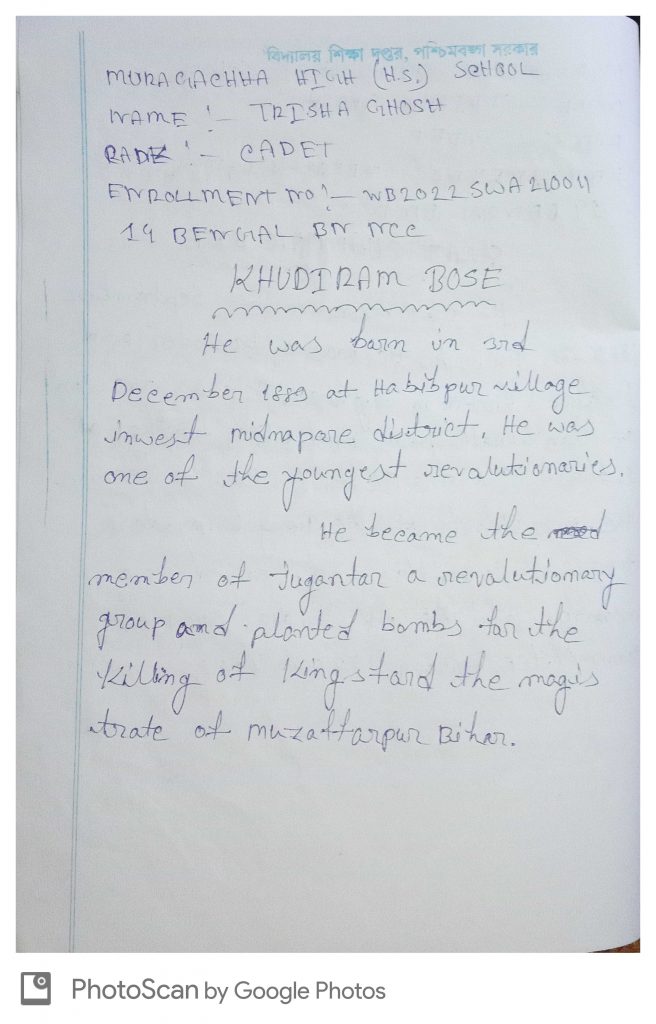 বিদ্যালয় শিক্ষা দপ্তর, পশ্চিমবঙ্গ সরকার
MURAGACHHA HIGH (H.S.) SCHOOL
NAME :- TRISHA GHOSH
RANK :- CADET
ENROLLMENT NO :- WB2022SWA210011
14 BENGAL BN NCC
KHUDIRAM BOSE
He was born in 3rd
December 1889 at Habibpur village
inwest midnapore district. He was
one of the youngest revolutionaries.
He became the
member of Jugantar a revolutionary
group and planted bombs for the
killing of Kingsford the magis
trate of Muzaffarpur Bihar.
PhotoScan by Google Photos